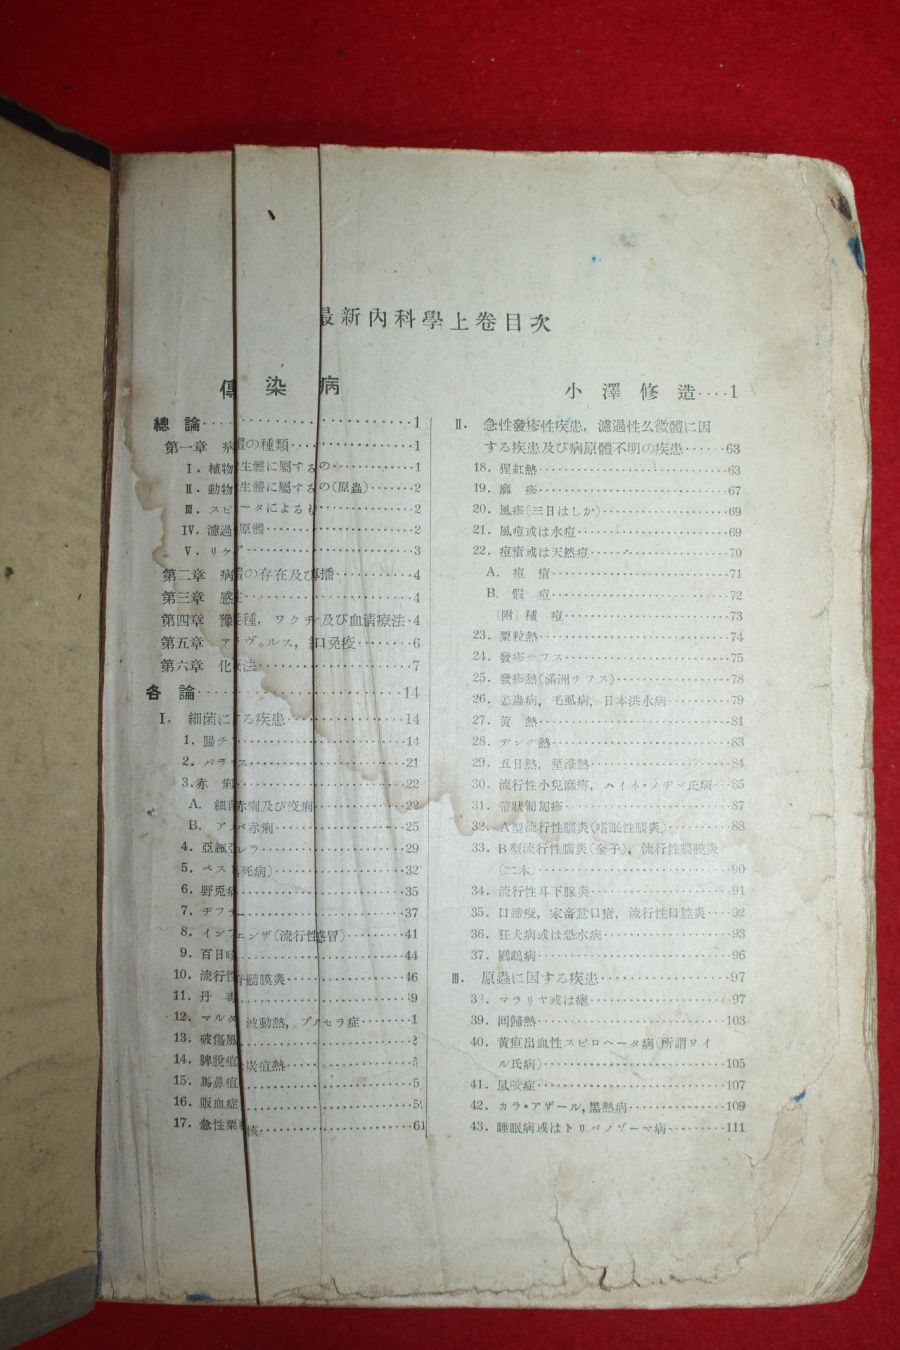 最新內科學上卷目次
傳染病 小澤修造····1
總論·····1
第一章 病體の種類·····1
I. 植物 生體に屬するの·····1
II. 動物 生體に屬するの(原蟲)·····2
III. スピ ータによる·····2
IV. 濾過 原體·····2
V. リケ·····3
第二章 病 の存在及び 播·····4
第三章 感·····4
第四章 豫 種, ワクチ 及び血清療法·4
第五章 ヴルス, 口免疫·····6
第六章 化 法·····7
各論·····14
I. 細菌に る疾患·····14
1. 腸チ·····14
2. パラ ス·····21
3. 赤痢·····22
A. 細菌 赤痢及び疫痢·····22
B. アメ バ赤痢·····25
4. 亞細亞 レラ·····29
5. ペス 死病)·····32
6. 野兎病·····35
7. ヂフテ·····37
8. インフ エンザ(流行性感冒)·····41
9. 百日咳·····44
10. 流行性 脊髓膜炎·····46
11. 丹毒·····9
12. マルタ 波動熱, ブルセラ症·····1
13. 破傷風·····2
14. 脾脫疽 炭疽熱·····
15. 馬鼻疽·····5
16. 敗血症·····5
17. 急性粟 核·····61
II. 急性發疹性疾患, 濾過性么微體に因
する疾患及び病原體不明の疾患·····63
18. 猩紅熱·····63
19. 痲疹·····67
20. 風疹(三日はしか)·····69
21. 風痘或は水痘·····69
22. 痘瘡或は天然痘·····70
A. 痘瘡·····71
B. 假痘·····72
〔附〕種痘·····73
23. 粟粒熱·····74
24. 發疹チフス·····75
25. 發疹熱(滿洲チフス)·····78
26. 恙蟲病, 毛虱病, 日本洪水病·····79
27. 黃熱·····81
28. デング熱·····83
29. 五日熱, 塹濠熱·····84
30. 流行性小兒麻痺, ハイネ・メヂン氏病··85
31. 帶狀匍匐疹·····87
32. A型流行性腦炎(嗜眠性腦炎)·····88
33. B型流行性腦炎(金子), 流行性腦膜炎
(二木)·····90
34. 流行性耳下腺炎·····91
35. 口蹄疫, 家畜鵞口瘡, 流行性口腔炎····92
36. 狂犬病或は恐水病·····93
37. 鸚鵡病·····96
III. 原蟲に因する疾患·····97
38. マラリヤ或は瘧·····97
39. 回歸熱·····103
40. 黃疸出血性スピロヘータ病(所謂ワイ
ル氏病)·····105
41. 鼠咬症·····107
42. カラ・アザール, 黑熱病·····109
43. 睡眠病或はトリパノゾーマ病·····111